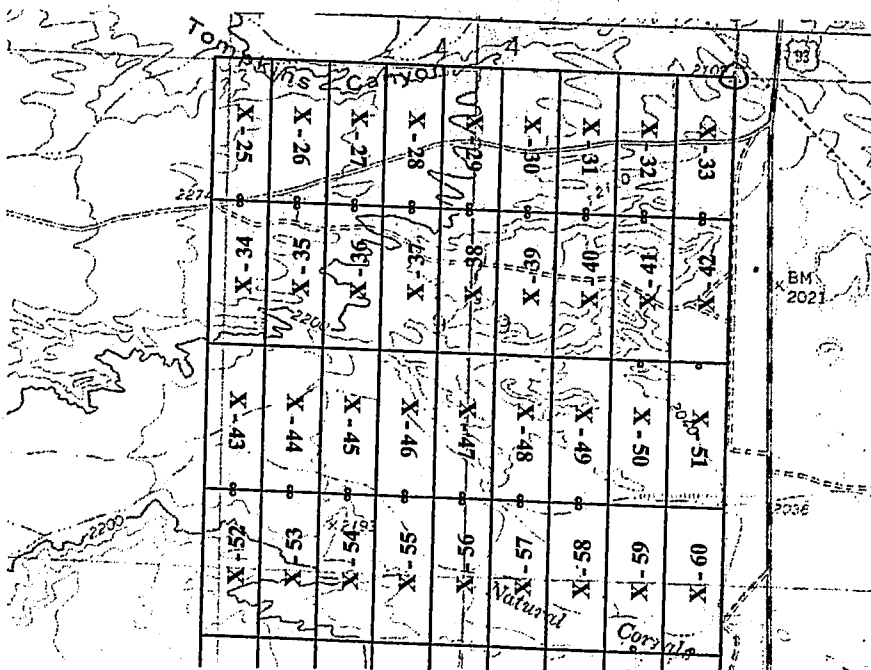 Tompkins Canyon
4 4
93
2107
X-25 X-26 X-27 X-28 X-29 X-30 X-31 X-32 X-33
2274
X-34 X-35 X-36 X-37 X-38 X-39 X-40 X-41 X-42
BM
2021
2200
X-43 X-44 X-45 X-46 X-47 X-48 X-49 X-50 X-51
2040
2036
2200
2193
X-52 X-53 X-54 X-55 X-56 X-57 X-58 X-59 X-60
Natural Corrals